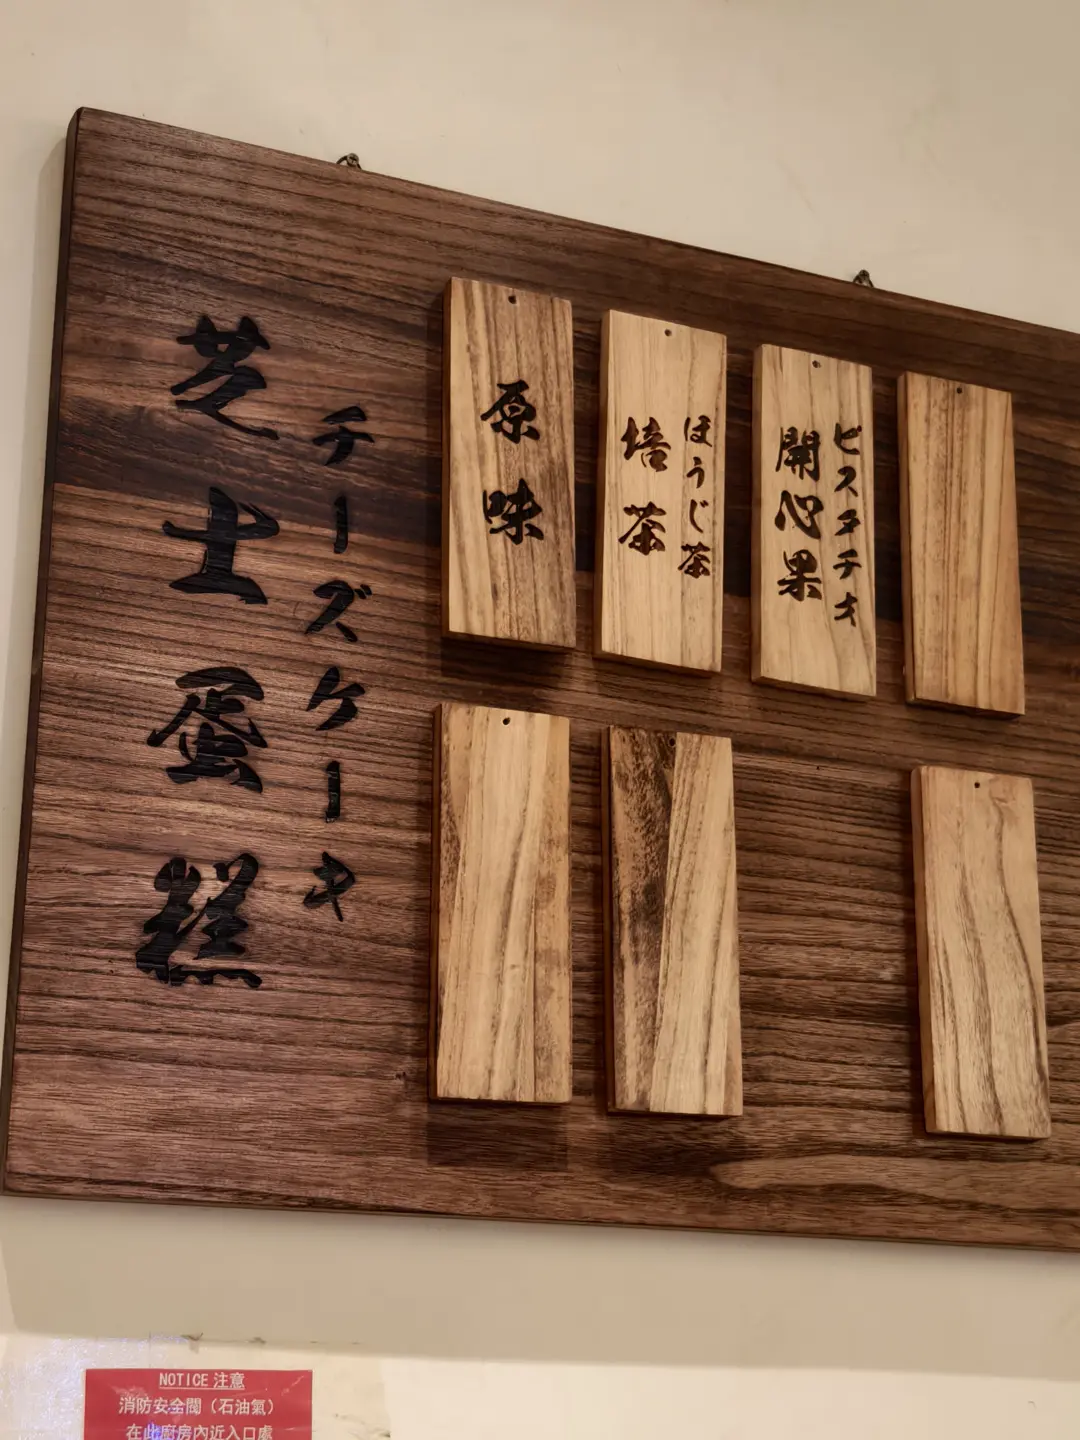 芝士蛋糕
チーズケーキ
原味
培茶
ほうじ茶
開心果
ピスタチオ
NOTICE 注意
消防安全閥（石油氣）
在此廚房內近入口處